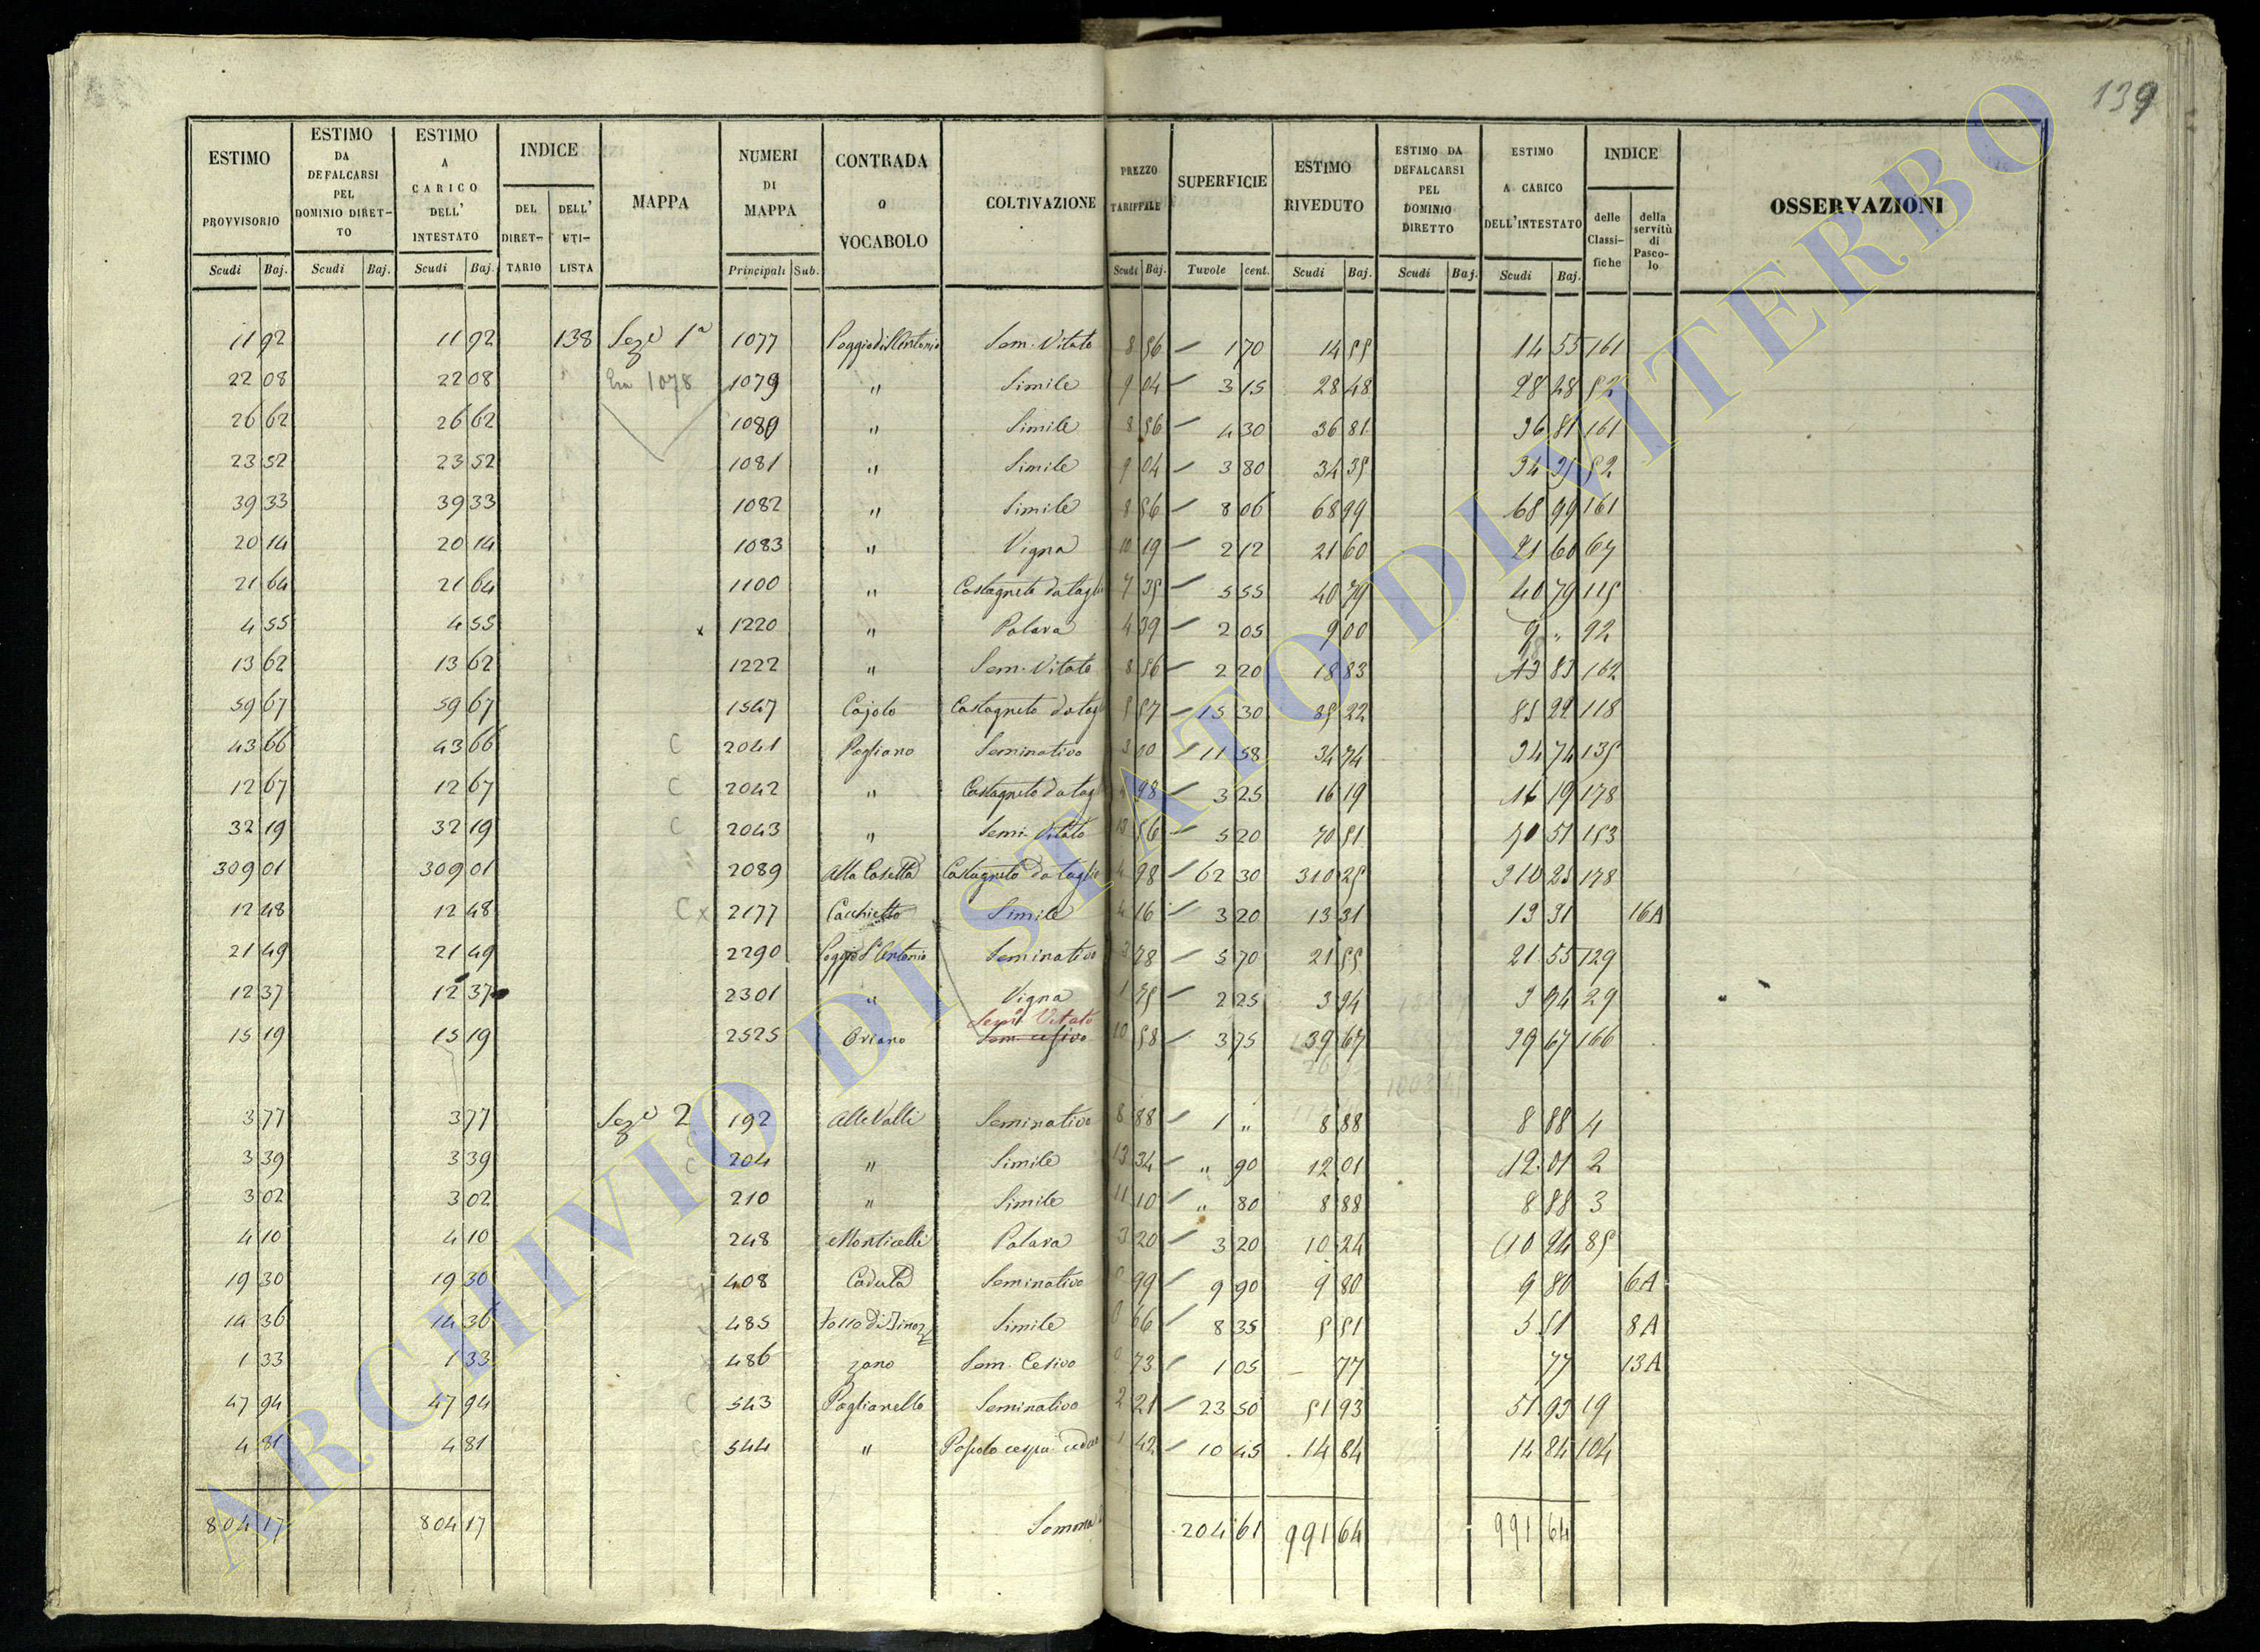 139
ESTIMO PROVVISORIO Scudi Baj. | ESTIMO DA DEFALCARSI PEL DOMINIO DIRET-TO Scudi Baj. | ESTIMO A CARICO DELL' INTESTATO Scudi Baj. | INDICE DEL DIRET-TARIO | DELL' UTI-LISTA | MAPPA | NUMERI DI MAPPA Principali Sub. | CONTRADA o VOCABOLO | COLTIVAZIONE | PREZZO TARIFFALE Scudi Baj. | SUPERFICIE Tavole cent. | ESTIMO RIVEDUTO Scudi Baj. | ESTIMO DA DEFALCARSI PEL DOMINIO DIRETTO Scudi Baj. | ESTIMO A CARICO DELL'INTESTATO Scudi Baj. | INDICE delle Classi-fiche | della servitù di Pasco-lo | OSSERVAZIONI
11 92 11 92 138 Sez.e 1a 1077 Poggio di S. Antonio Sem. Vitato 8 56 1 70 14 55 14 55 161
22 08 22 08 Era 1078 1079 " Simile 9 04 3 15 28 48 28 48 52
26 62 26 62 1080 " Simile 8 56 4 30 36 81 36 81 161
23 52 23 52 1081 " Simile 9 04 3 80 34 35 34 35 52
39 33 39 33 1082 " Simile 8 56 8 06 68 99 68 99 161
20 14 20 14 1083 " Vigna 10 19 2 12 21 60 21 60 67
21 64 21 64 1100 " Castagneto da taglio 7 35 5 55 40 79 40 79 115
4 55 4 55 x 1220 " Palara 4 39 2 05 9 00 9 " 92
13 62 13 62 1222 " Sem. Vitato 8 56 2 20 18 83 83 162
59 67 59 67 1547 Cajolo Castagneto da tagl 5 57 15 30 85 22 85 22 118
43 66 43 66 C 2041 Pogliano Seminativo 3 00 11 58 34 74 34 74 135
12 67 12 67 C 2042 " Castagneto da tagl 4 98 3 25 16 19 16 19 178
32 19 32 19 C 2043 " Semi. Vitato 13 56 5 20 70 51 70 51 153
309 01 309 01 2089 Alla Casetta Castagneto da taglio 4 98 62 30 310 25 310 25 178
12 48 12 48 C x 2177 Cacchietto Simile 4 16 3 20 13 31 13 31 16A
21 49 21 49 2290 Poggio S. Antonio Seminativo 3 78 5 70 21 55 21 55 129
12 37 12 37 2301 " Vigna 1 75 2 25 3 94 3 94 29
Sem. Vitato
15 19 15 19 2525 Oriano Sem. cesivo 10 58 3 75 39 67 39 67 166
3 77 3 77 Sez.e 2 192 Alle Valli Seminativo 8 88 1 " 8 88 8 88 4
3 39 3 39 C 204 " Simile 13 34 " 90 12 01 12 01 2
3 02 3 02 210 " Simile 11 10 " 80 8 88 8 88 3
4 10 4 10 248 Monticelli Palara 3 20 3 20 10 24 10 24 85
19 30 19 30 408 Caduta Seminativo 0 99 9 90 9 80 9 80 6A
14 36 14 36 485 Fosso di Simile 0 66 8 35 5 51 5 51 8A
1 33 1 33 486 zano Sem. Cesivo 0 73 1 05 77 77 13A
47 94 47 94 C 543 Poglianello Seminativo 2 21 23 50 51 93 51 93 19
4 81 4 81 C 544 " Pascolo cespu 1 42 10 45 14 84 14 84 104
804 17 804 17 Somma 204 61 991 64 991 64
ARCHIVIO DI STATO DI VITERBO